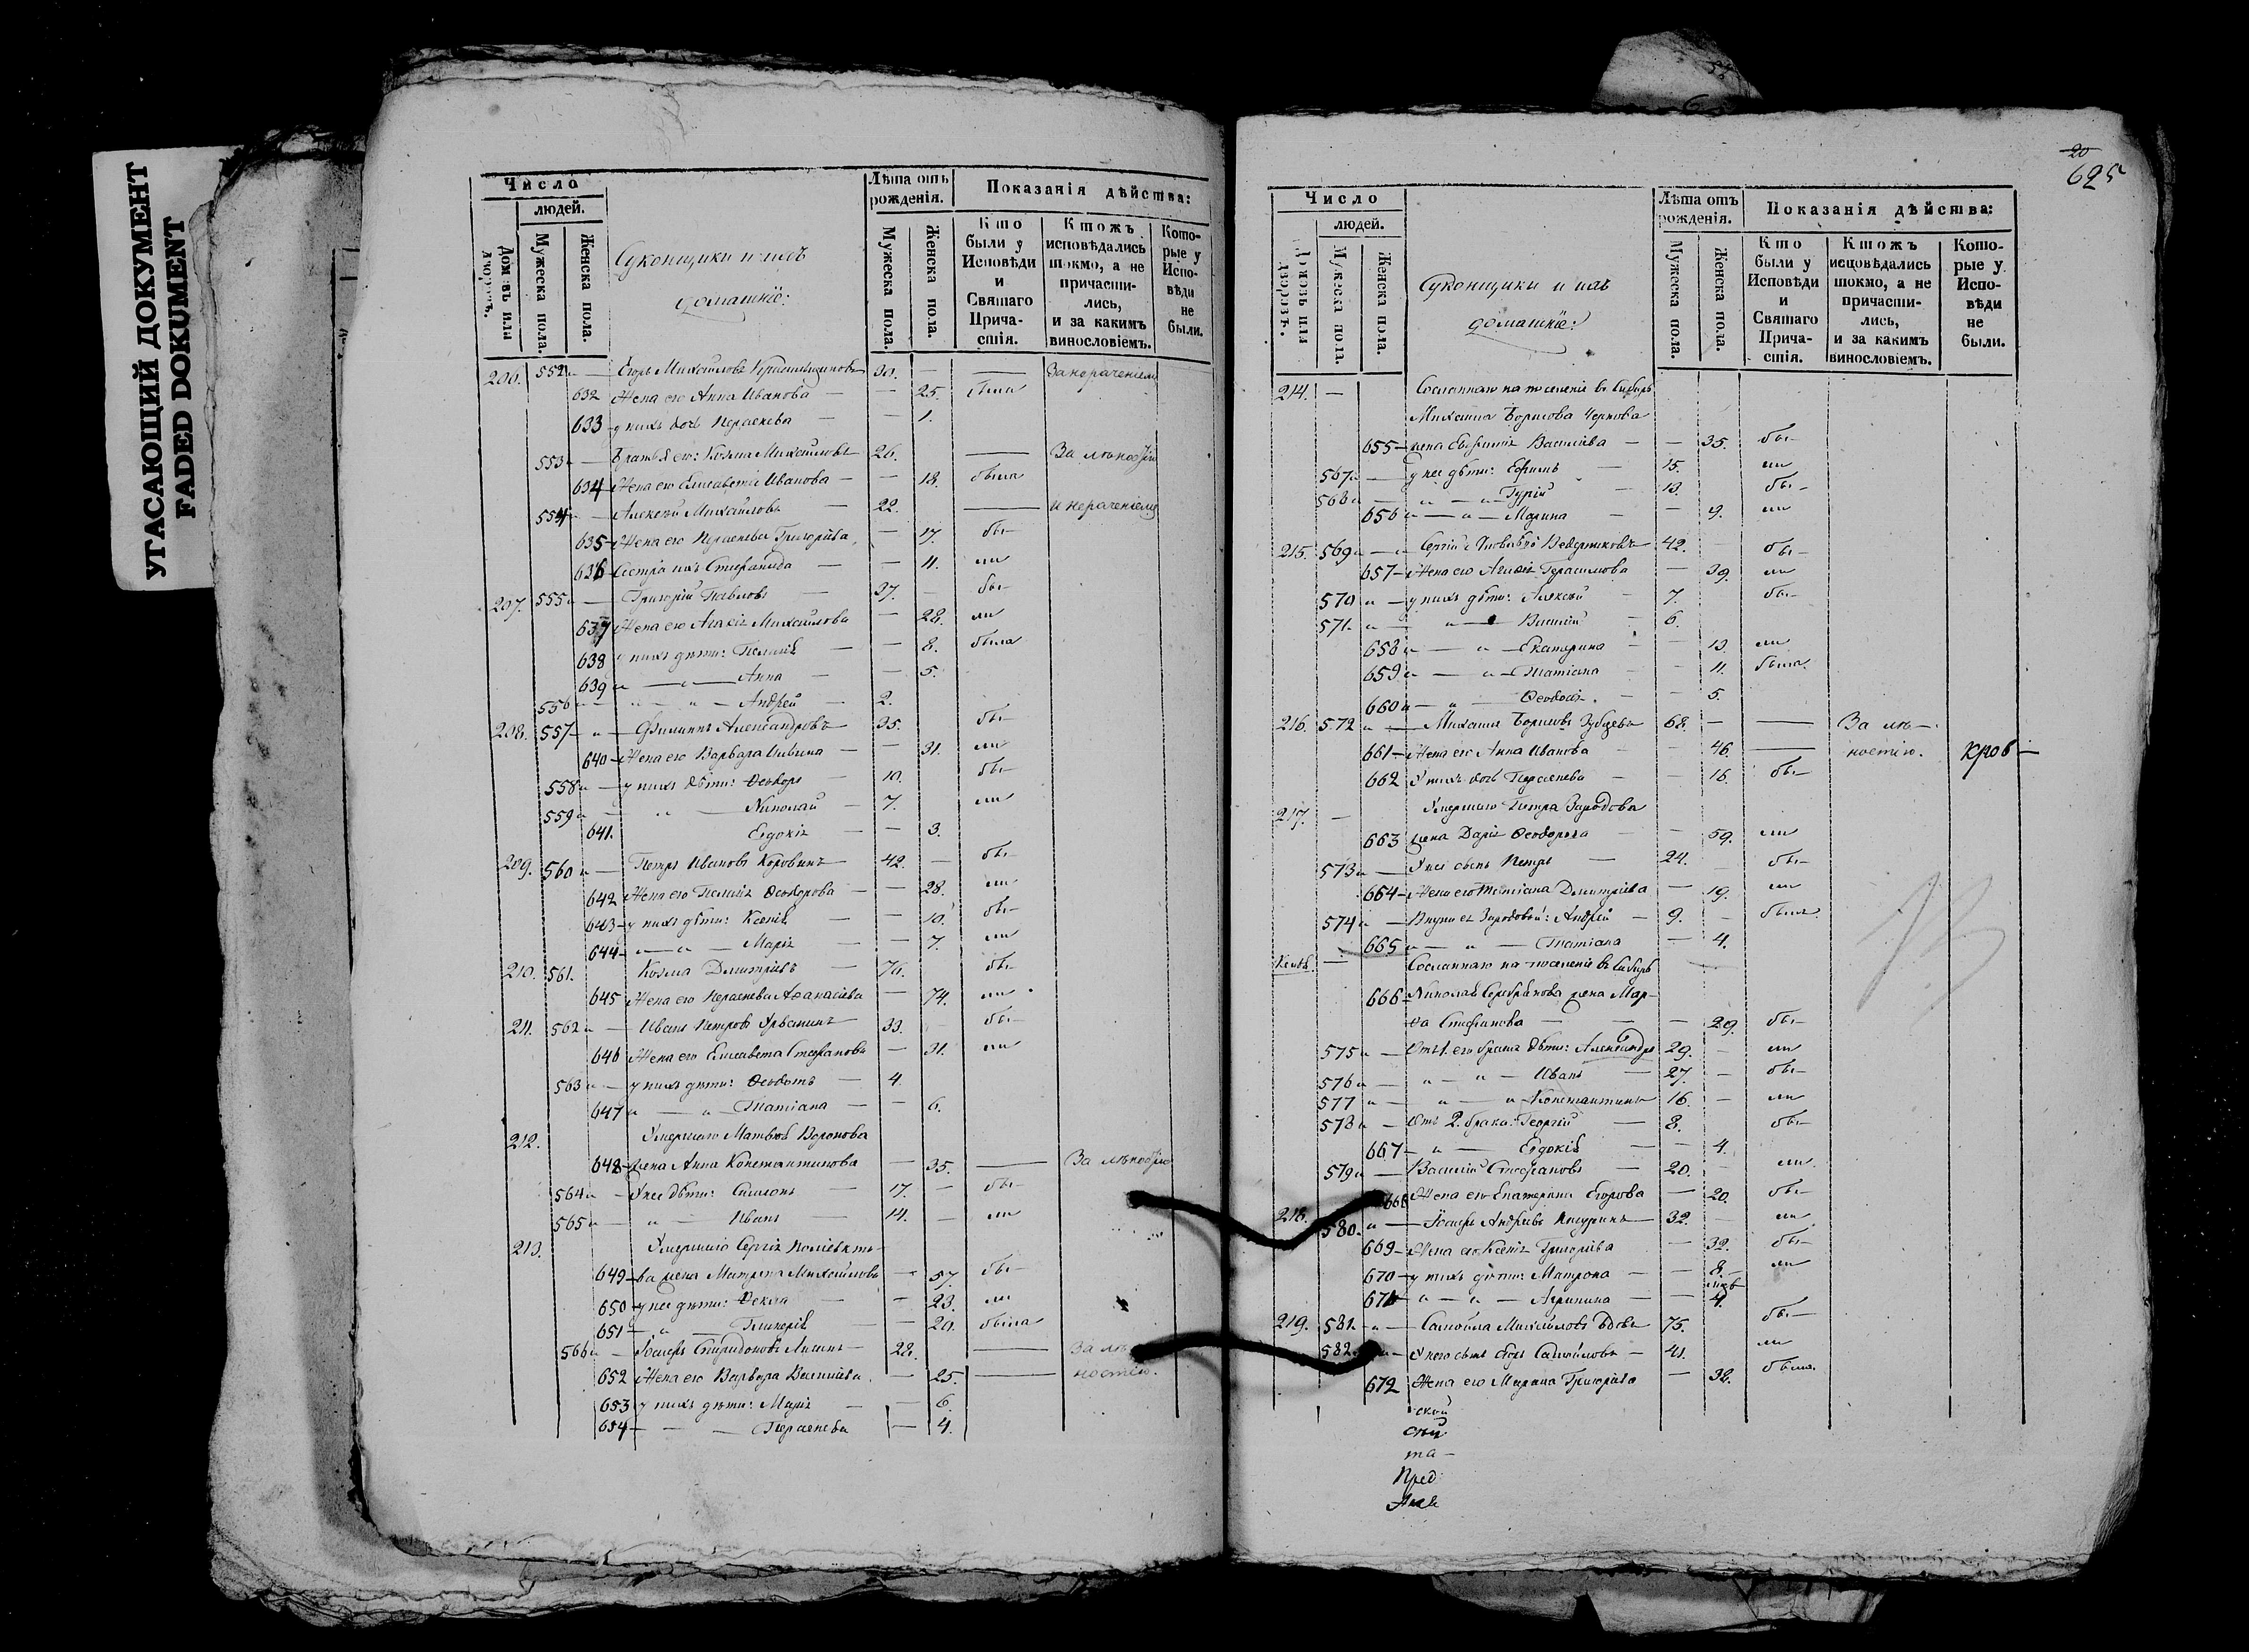 УГАСАЮЩИЙ ДОКУМЕНТ
FADED DOKUMENT
Число
людей.
Домовъ или дворовъ.
Мужеска пола.
Женска пола.
Суконщики и ихъ
домашнїе:
Лѣта отъ рожденія.
Мужеска пола.
Женска пола.
Показанія дѣйства:
Кто были у Исповѣди и Святаго Прича-стія.
Ктожъ исповѣдались токмо, а не причасти-лись, и за какимъ винословіемъ.
Кото-рые у Испо-вѣди не были.
206. 552 Егоръ Михайловъ 30. — За нераченіемъ
632 Жена его Анна Иванова — 25. была
633 у нихъ дочь Параскева 1.
553 Братья его: Козма Михайловъ 26. — За
634 Жена его Елисавета Иванова — 18. была
554 Алексѣй Михайловъ 22. — и нераченіемъ
635 Жена его Параскева Григорьева — 17. бы-
636 Сестра ихъ Стефанида — 11. ли
207. 555 Григорій Павловъ 37. — бы-
637 Жена его Агафія Михайлова — 28. ли
638 у нихъ дѣти: Пелагія — 8. была
639 Анна — 5.
556 Андрей 2.
208. 557 Филиппъ Александровъ 35. бы-
640 Жена его Варвара — 31. ли
558 у нихъ дѣти: Ѳеодоръ 10. бы-
559 Николай 7. ли
641. Евдокія — 3.
209. 560 Петръ Ивановъ Коровинъ 42. — бы-
642 Жена его Пелагія Ѳеодорова — 28. ли
643 у нихъ дѣти: Ксенія — 10. бы-
644 Марія — 7. ли
210. 561. Козма Дмитріевъ 76. бы-
645 Жена его Параскева Аѳанасіева — 74. ли
211. 562 Иванъ Петровъ 33. бы-
646 Жена его Елисавета Стефанова — 31. ли
563 у нихъ дѣти: Ѳеодотъ 4.
647 Татіана — 6.
212. Умершаго Матвѣя Воронова
648 жена Анна Константинова — 35. — За
564 У нея дѣти: Симеонъ 17. — бы-
565 Иванъ 14. — ли
213. Умершаго Сергія
649 ва жена Матрона Михайлова — 57. бы-
650 у нея дѣти: Ѳекла — 23. ли
651 Гликерія — 20. была
566 Іосифъ Спиридоновъ 28. — За лѣ-
652 Жена его Варвара Васильева — 25. — ностію.
653 у нихъ дѣти: Марія — 6.
654 Параскева — 4.
20
625
Число
людей.
Домовъ или дворовъ.
Мужеска пола.
Женска пола.
Суконщики и ихъ
домашнїе:
Лѣта отъ рожденія.
Мужеска пола.
Женска пола.
Показанія дѣйства:
Кто были у Исповѣди и Святаго Прича-стія.
Ктожъ исповѣдались токмо, а не причасти-лись, и за какимъ винословіемъ.
Кото-рые у Испо-вѣди не были.
214. — Сосланнаго на поселеніе въ Сибирь
Михаила Борисова Чернова
655 жена Васильева — 35. бы-
567 у нея дѣти: Ефимъ 15. ли
568 Гурій 13. бы-
656 Марина — 9. ли
215. 569 Сергій Ведерниковъ 42. — бы-
657 Жена его Герасимова — 39. ли
570 у нихъ дѣти: Алексѣй 7. бы-
571. Василій 6.
658 Екатерина — 13. ли
659 Татіана — 11. была
660 Ѳеодосія — 5.
216. 572 Михаилъ Борисовъ Зубцовъ 68. — — За лѣ-
661 Жена его Анна Иванова — 46. — ностію. Кров-
662 У нихъ дочь Параскева — 16. бы-
217. — Умершаго Петра
663 жена Дарія Ѳеодорова — 59. ли
573 У нея сынъ Петръ 24. — бы-
664 Жена его Татіана Дмитріева — 19. ли
574 Внуки ея Андрей 9. — былъ
665 Татіана — 4.
— Сосланнаго на поселеніе въ Сибирь
666 Николая Серебрякова жена Мар-
ѳа Стефанова — 29. бы-
575 Отъ 1. его брака дѣти: Александръ 29. — ли
576 Иванъ 27. — бы-
577 Константинъ 16. — ли
578 Отъ 2. брака: Георгій 8. бы-
667 Евдокія — 4.
579 Василій Стефановъ 20. — ли
668 Жена его Екатерина Егорова — 20. бы-
218. 580. Іосифъ Андреевъ 32. — ли
669 Жена его Ксенія Григорьева — 32. бы-
670 у нихъ дѣти: Матрона — 8. ли
671 Агрипина — 4.
219. 581. Самойла Михайловъ вдовъ 75. бы-
582. У него сынъ Самойловъ 41. ли
672 Жена его Марина Григорьева — 38. была
ской
та-
Пред